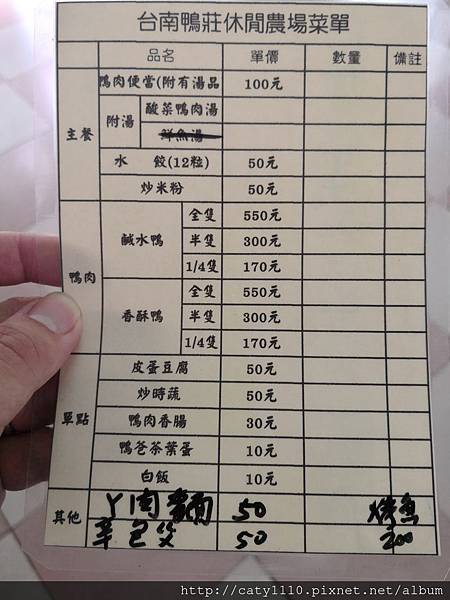 台南鴨莊休閒農場菜單
品名 單價 數量 備註
主餐
鴨肉便當(附有湯品 100元
附湯 酸菜鴨肉湯
鮮魚湯
水 餃(12粒) 50元
炒米粉 50元
鴨肉
鹹水鴨 全隻 550元
半隻 300元
1/4隻 170元
香酥鴨 全隻 550元
半隻 300元
1/4隻 170元
單點
皮蛋豆腐 50元
炒時蔬 50元
鴨肉香腸 30元
鴨爸茶葉蛋 10元
白飯 10元
其他
丫肉 50 烤魚
包 50 200
http://caty1110.pixnet.net/album